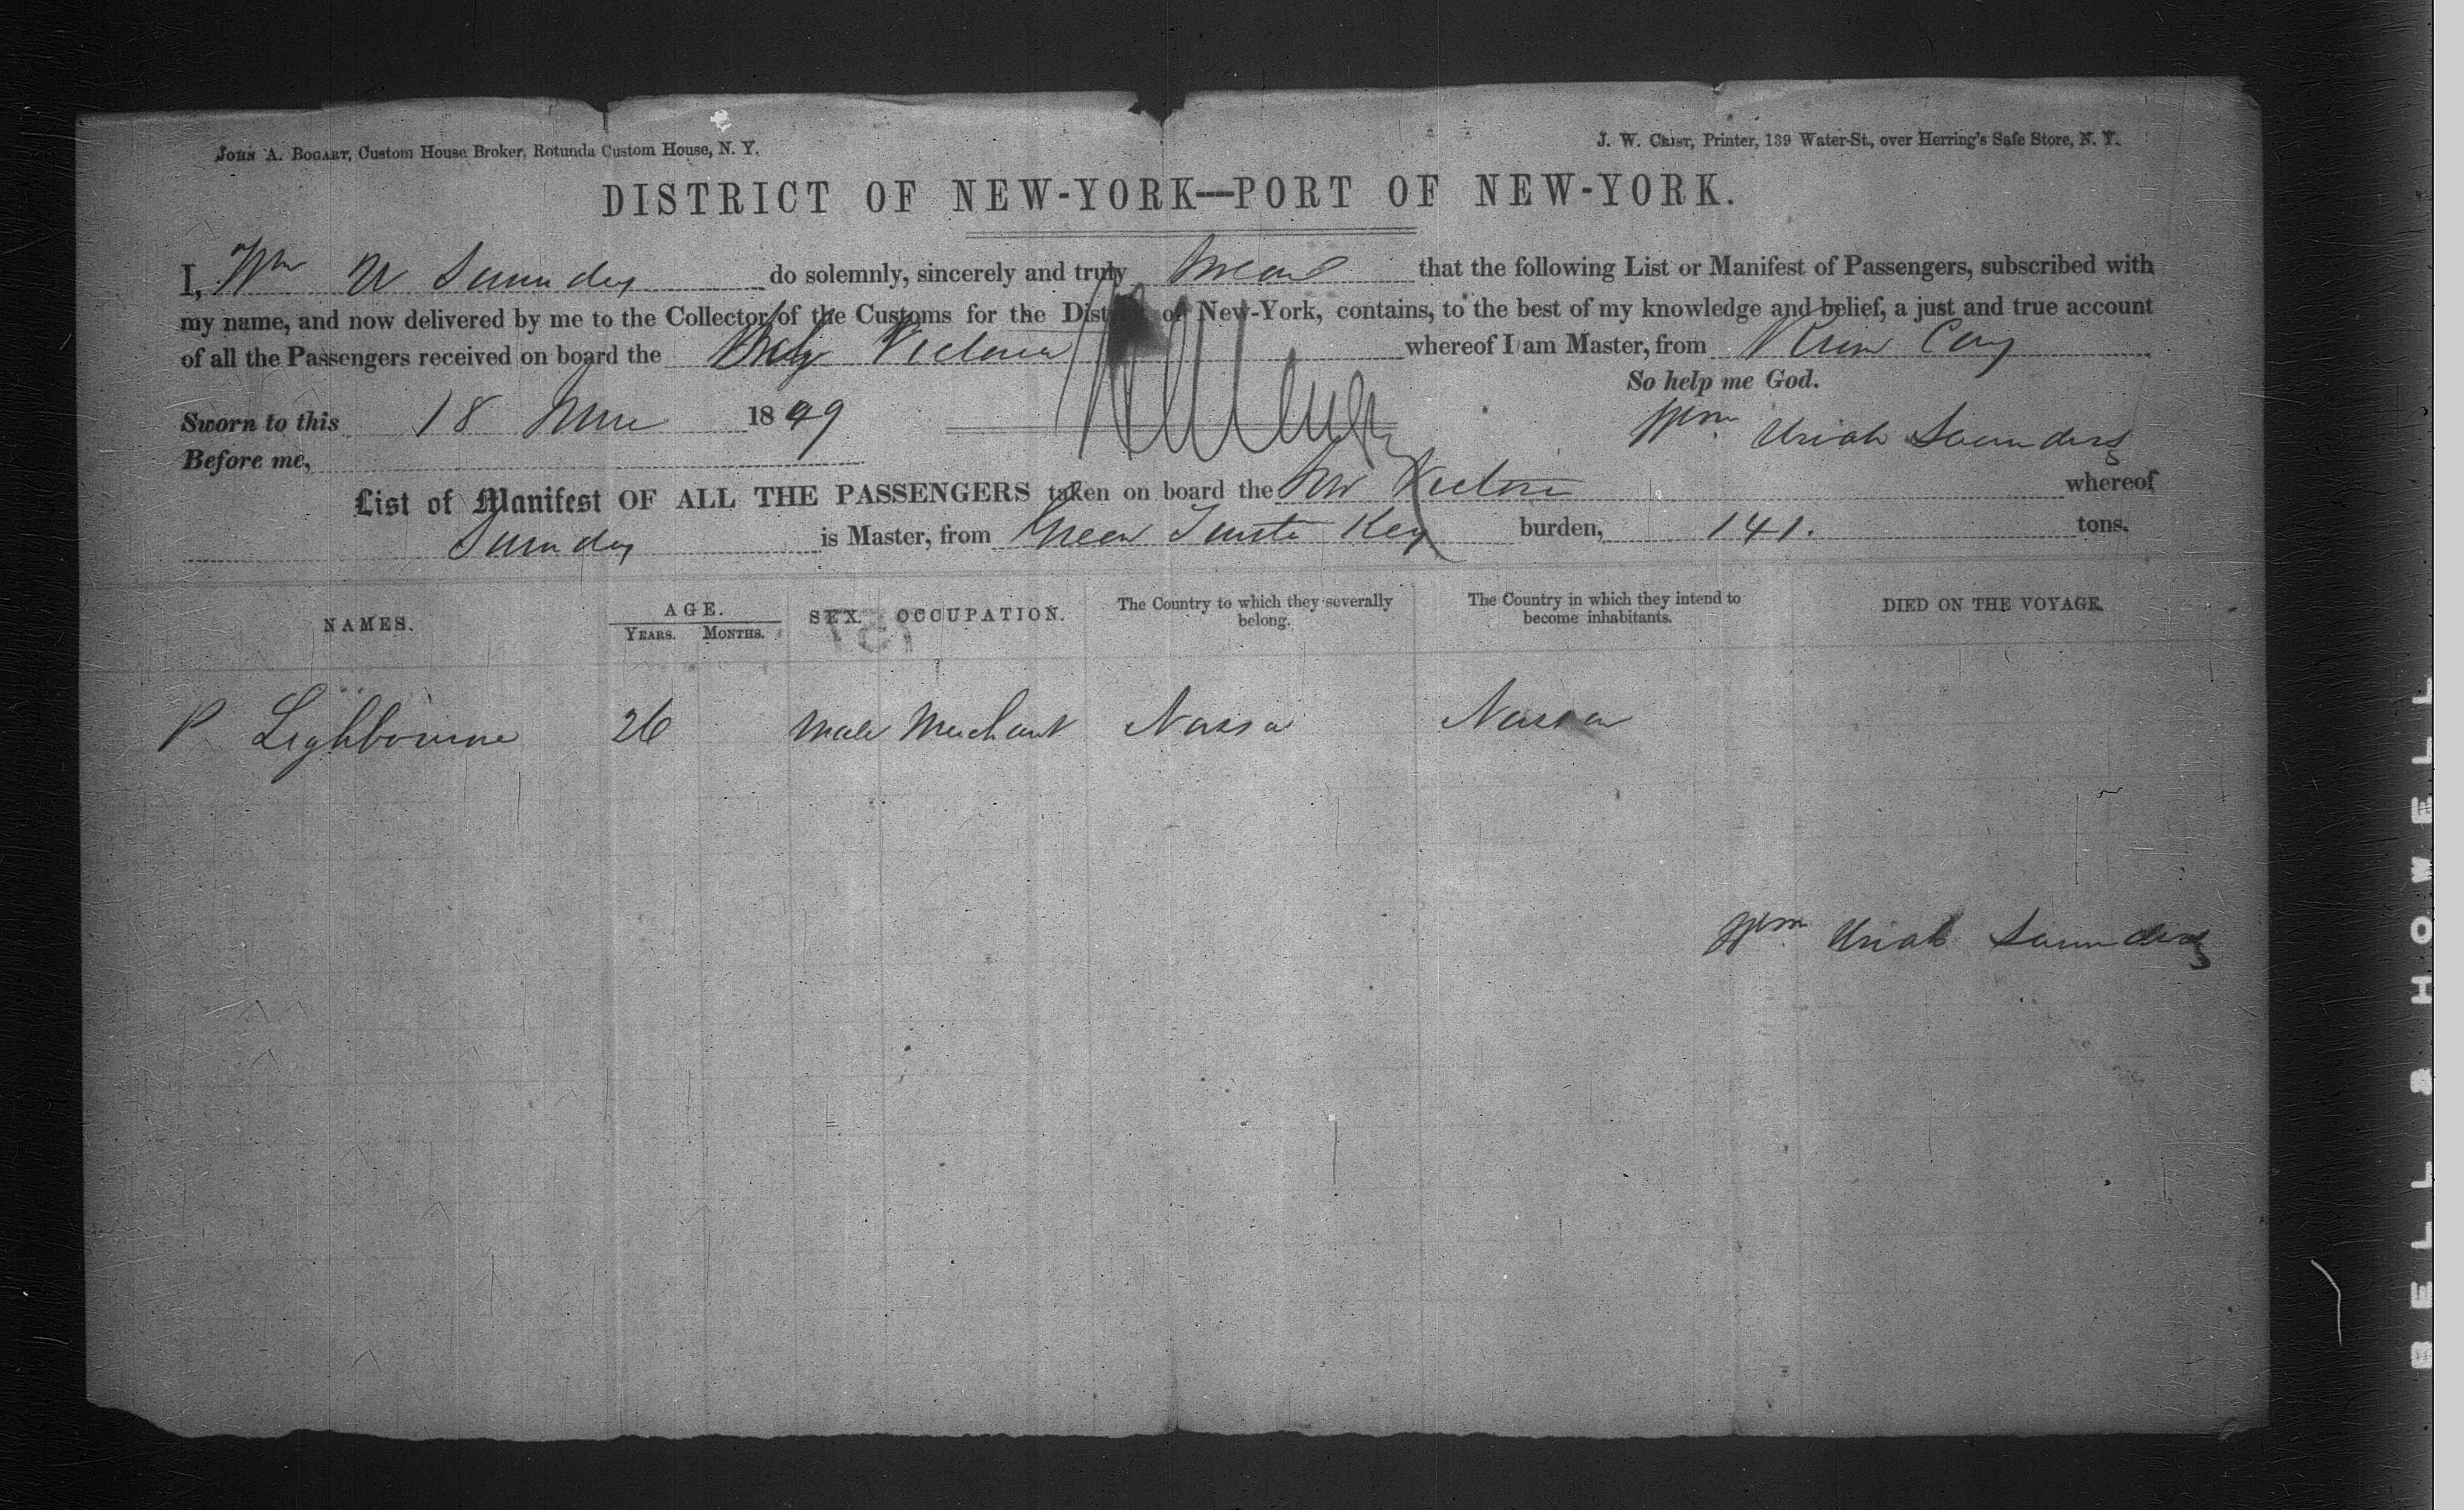 JOHN A. BOGART, Custom House Broker, Rotunda Custom House, N. Y.
J. W. CRIST, Printer, 139 Water-St., over Herring's Safe Store, N. Y.
DISTRICT OF NEW-YORK—PORT OF NEW-YORK.
I, Wm U Saunders do solemnly, sincerely and truly Swear that the following List or Manifest of Passengers, subscribed with
my name, and now delivered by me to the Collector of the Customs for the District of New-York, contains, to the best of my knowledge and belief, a just and true account
of all the Passengers received on board the Victoria whereof I am Master, from
So help me God.
Sworn to this 18 1849
Wm Uriah Saunders
Before me,
List of Manifest OF ALL THE PASSENGERS taken on board the Victoria whereof
Saunders is Master, from Green Key burden, 141. tons.
NAMES. AGE. YEARS. MONTHS. SEX. OCCUPATION. The Country to which they severally belong. The Country in which they intend to become inhabitants. DIED ON THE VOYAGE.
P Lighbourne 26 Male Merchant Nassa Nassau
Wm Uriah Saunders
BELL & HOWELL